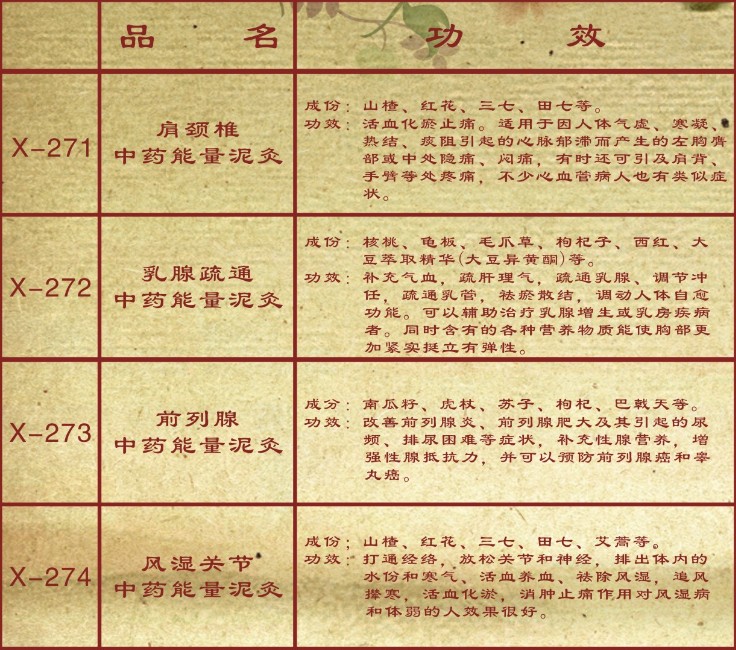 品 名 功 效
X-271
肩颈椎
中药能量泥灸
成份：山楂、红花、三七、田七等。
功效：活血化瘀止痛。适用于因人体气虚、寒凝、
热结、痰阻引起的心脉郁滞而产生的左胸膺
部或中处隐痛、闷痛，有时还可引及肩背、
手臂等处疼痛，不少心血管病人也有类似症
状。
X-272
乳腺疏通
中药能量泥灸
成份：核桃、龟板、毛爪草、枸杞子、西红、大
豆萃取精华(大豆异黄酮)等。
功效：补充气血，疏肝理气，疏通乳腺、调节冲
任，疏通乳管，祛瘀散结，调动人体自愈
功能。可以辅助治疗乳腺增生或乳房疾病
者。同时含有的各种营养物质能使胸部更
加紧实挺立有弹性。
X-273
前列腺
中药能量泥灸
成分：南瓜籽、虎杖、苏子、枸杞、巴戟天等。
功效：改善前列腺炎、前列腺肥大及其引起的尿
频、排尿困难等症状，补充性腺营养，增
强性腺抵抗力，并可以预防前列腺癌和睾
丸癌。
X-274
风湿关节
中药能量泥灸
成份；山楂、红花、三七、田七、艾蒿等。
功效：打通经络，放松关节和神经，排出体内的
水份和寒气、活血养血、祛除风湿，追风
撵寒，活血化淤，消肿止痛作用对风湿病
和体弱的人效果很好。